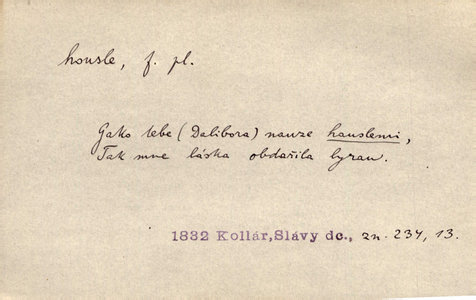 housle, f. pl.
Gako tebe (Dalibora) nauze hauslemi,
Tak mne láska obdařila lyrau.
1832 Kollár, Slávy dc., zn. 234, 13.